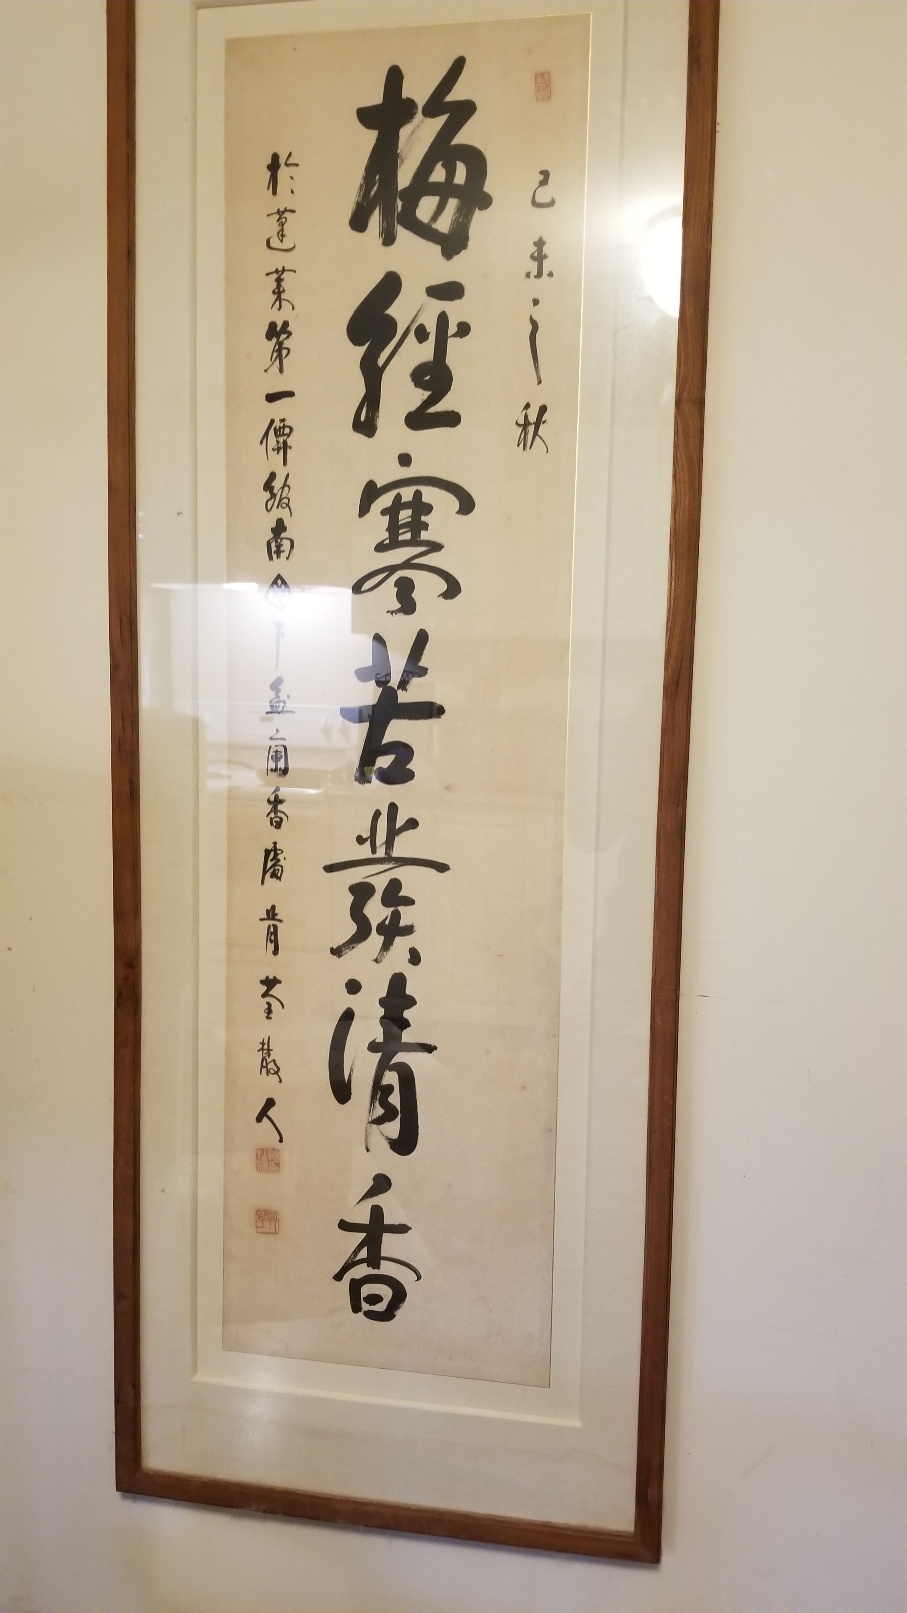 己未之秋
梅經寒苦發清香
於蓬萊第一僊級南下盆蘭香處肯荃散人